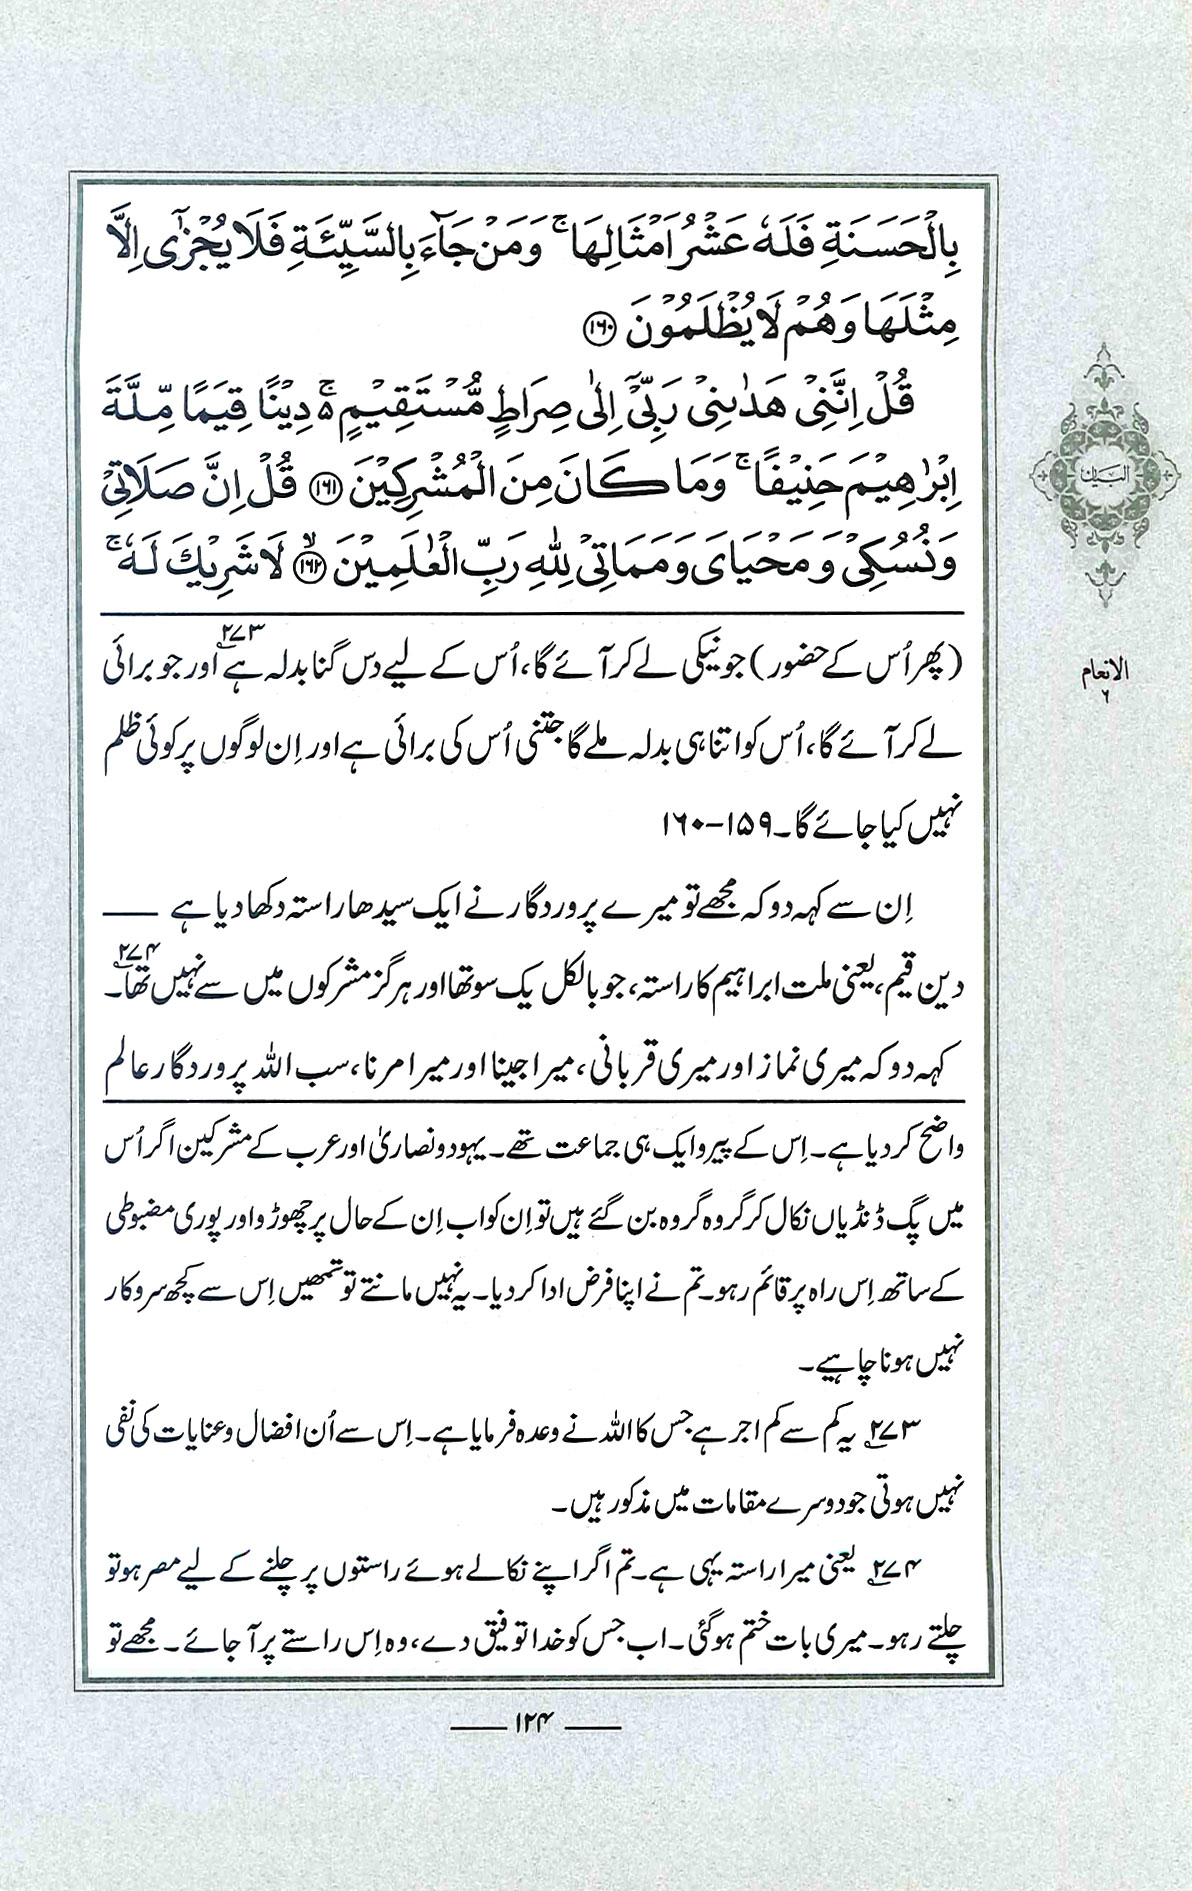 بِالْحَسَنَةِ فَلَهٗ عَشْرُ اَمْثَالِهَا ۚ وَمَنْ جَآءَ بِالسَّيِّئَةِ فَلَا يُجْزٰٓى اِلَّا
مِثْلَهَا وَهُمْ لَا يُظْلَمُوْنَ ﴿۱۶۰﴾
قُلْ اِنَّنِيْ هَدٰىنِيْ رَبِّيْٓ اِلٰى صِرَاطٍ مُّسْتَقِيْمٍ ۚ۵ دِيْنًا قِيَمًا مِّلَّةَ
اِبْرٰهِيْمَ حَنِيْفًا ۚ وَمَا كَانَ مِنَ الْمُشْرِكِيْنَ ﴿۱۶۱﴾ قُلْ اِنَّ صَلَاتِيْ
وَنُسُكِيْ وَمَحْيَايَ وَمَمَاتِيْ لِلّٰهِ رَبِّ الْعٰلَمِيْنَ ﴿۱۶۲﴾ۙ لَا شَرِيْكَ لَهٗ ۚ
(پھر اُس کے حضور) جو نیکی لے کر آئے گا، اُس کے لیے دس گنا بدلہ ہے۲۷۳ اور جو برائی
لے کر آئے گا، اُس کو اتنا ہی بدلہ ملے گا جتنی اُس کی برائی ہے اور اِن لوگوں پر کوئی ظلم
نہیں کیا جائے گا۔ ۱۵۹-۱۶۰
اِن سے کہہ دو کہ مجھے تو میرے پروردگار نے ایک سیدھا راستہ دکھا دیا ہے ——
دین قیم، یعنی ملت ابراہیم کا راستہ، جو بالکل یک سو تھا اور ہرگز مشرکوں میں سے نہیں تھا۲۷۴۔
کہہ دو کہ میری نماز اور میری قربانی، میرا جینا اور میرا مرنا، سب اللہ پروردگار عالم
واضح کر دیا ہے۔ اِس کے پیرو ایک ہی جماعت تھے۔ یہود و نصاریٰ اور عرب کے مشرکین اگر اُس
میں پگ ڈنڈیاں نکال کر گروہ گروہ بن گئے ہیں تو اِن کو اب اِن کے حال پر چھوڑو اور پوری مضبوطی
کے ساتھ اِس راہ پر قائم رہو۔ تم نے اپنا فرض ادا کر دیا۔ یہ نہیں مانتے تو تمھیں اِس سے کچھ سروکار
نہیں ہونا چاہیے۔
۲۷۳ یہ کم سے کم اجر ہے جس کا اللہ نے وعدہ فرمایا ہے۔ اِس سے اُن افضال و عنایات کی نفی
نہیں ہوتی جو دوسرے مقامات میں مذکور ہیں۔
۲۷۴ یعنی میرا راستہ یہی ہے۔ تم اگر اپنے نکالے ہوئے راستوں پر چلنے کے لیے مصر ہو تو
چلتے رہو۔ میری بات ختم ہو گئی۔ اب جس کو خدا توفیق دے، وہ اِس راستے پر آ جائے۔ مجھے تو
البیان
الانعام
۶
—— ۱۲۴ ——